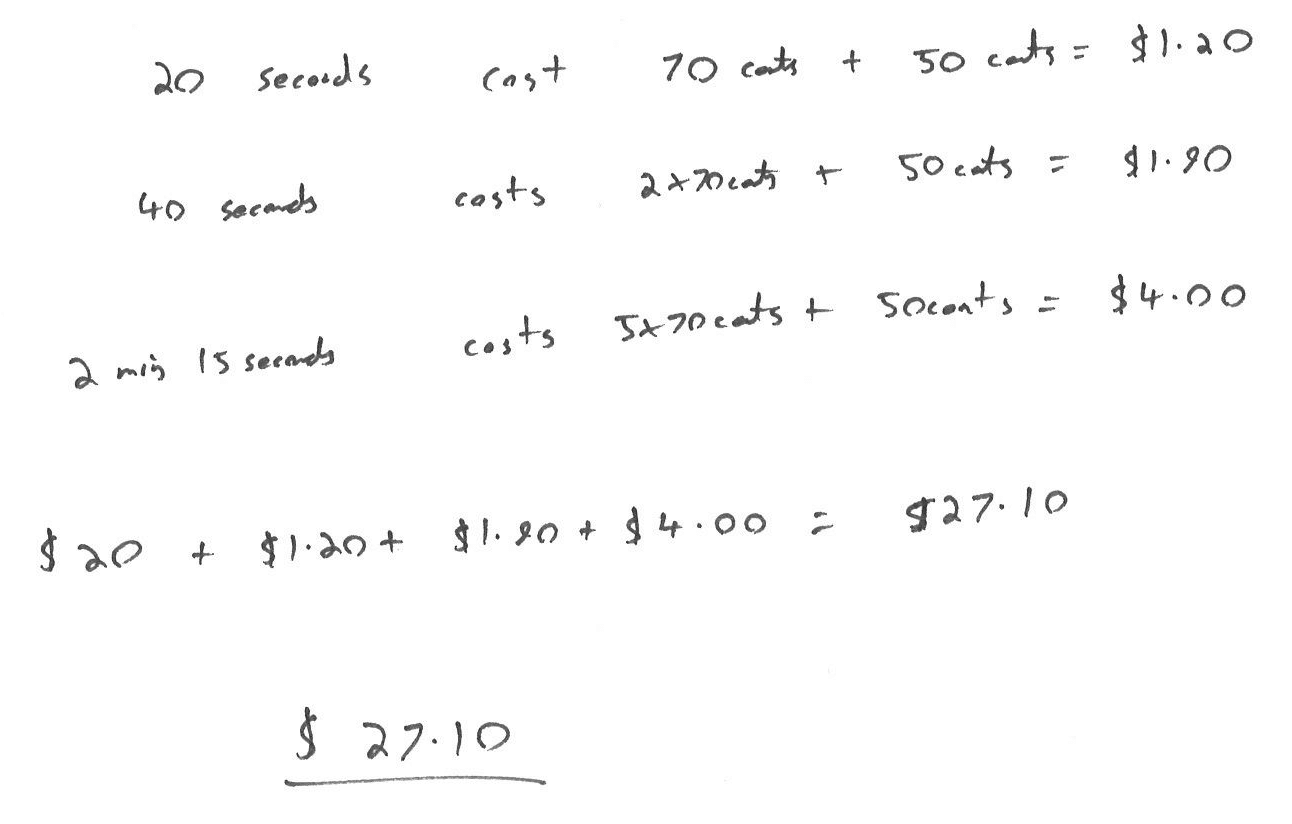 20 seconds cost 70 cents + 50 cents = $1.20
40 seconds costs 2x70cents + 50 cents = $1.90
2 min 15 seconds costs 5x70cents + 50cents = $4.00
$20 + $1.20+ $1.90 + $4.00 = $27.10
$ 27.10